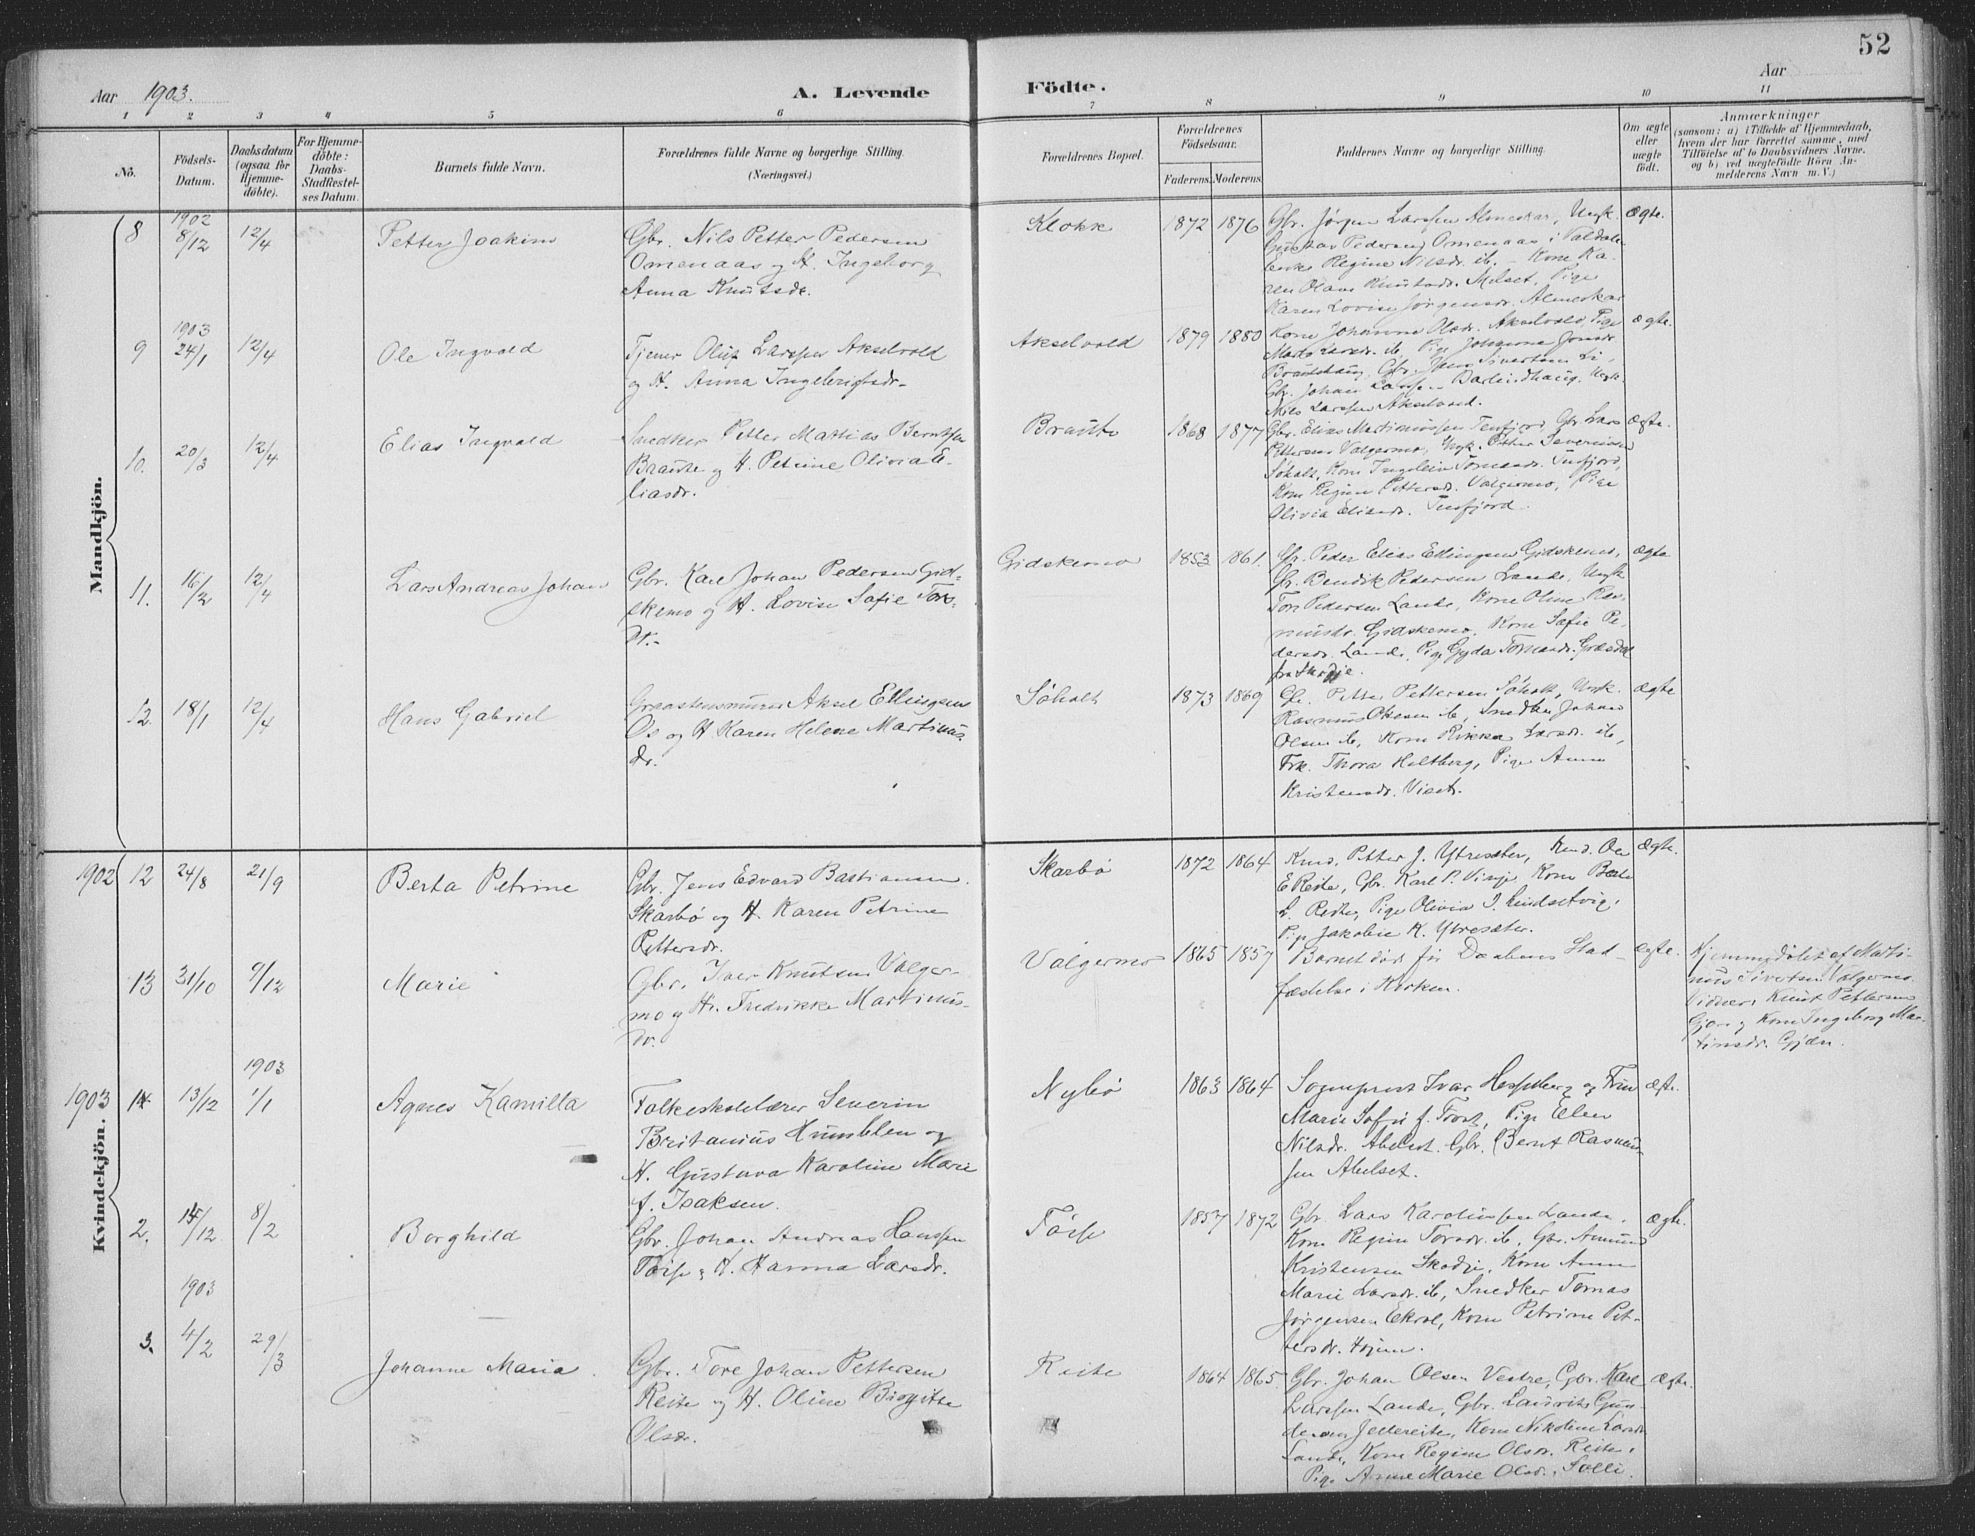 52
Aar 1903.
A. Levende Födte.
Aar
1 2 3 4 5 6 7 8 9 10 11
No.
Födsels-
Datum.
Daabsdatum
(ogsaa för
Hjemme-
döbte).
For Hjemme-
döbte:
Daabs-
Stadfæstel-
ses Datum.
Barnets fulde Navn.
Forældrenes fulde Navne og borgerlige Stilling.
(Næringsvei.)
Forældrenes Bopæl.
Forældrenes
Födselsaar.
Faderens. Moderens.
Faddernes Navne og borgerlige Stilling.
Om ægte
eller
uægte
födt.
Anmærkninger
(saasom: a) i Tilfælde af Hjemmedaab,
hvem der har forrettet samme, med
Tilföielse af to Daabsvidners Navne,
og b) ved uægtefödte Börn An-
melderens Navn m. V.)
Mandkjön.
8
1902
8/12
12/4
Petter Joakim
Gbr. Nils Petter Pedersen
Omenaas og H. Ingeborg
Anna Knutsdr.
Klokk
1872 1876
Gbr. Jørgen Larssen Almeskar, Ungk.
Gustav Pedersen Omenaas i Valdal
Regine Nilsdr. ib. - Kone Ka-
ren Olave Knutsdr. Melset, Pige
Karen Lovise Jørgensdr. Almeskar
ægte.
9
1903
24/1
12/4
Ole Ingvald
Tjener Oluf Larssen Akselvold
og H. Anna Ingebrigtsdr.
Akselvold
1879 1880
Kone Johanne Olsdr. Akselvold, Pige
Larsdr. ib, Pige Johanna
Gbr. Sivertsen Li,
Gbr. Johan Ungk.
Nils Larssen Akselvold.
ægte.
10.
20/3
12/4
Elias Ingvald
Snedker Petter Mattias Berntsen
Braute og H. Petrine Olivia E-
liasdr.
Braute
1868 1877
Gbr. Elias Martinussen Tenfjord, Gbr Lars
Pettersen Valgermo, Ungk. Petter Severinsen
Søholt, Kone Ingeleiv Tomasdr. Tenfjord,
Kone Regine Pettersdr. Valgermo, Pige
Olivia Eliasdr. Tenfjord.
ægte.
11.
16/2
12/4
Lars Andreas Johan
Gbr. Karl Johan Pedersen Gid-
skemo og H. Lovise Sofie Tors-
dr.
Gidskemo
1853 1861.
Gbr. Peder Elias Edlingsen Gidskemo,
Gbr. Bendik Pedersen Lande, Ungk
Tore Pedersen Lande, Kone Oline Ras-
musdr. Gidskemo, Kone Sofie Pe-
dersdr. Lande, Pige Gyda Tomasdr. Græsdal
fra Skodje.
ægte
12.
18/1
12/4
Hans Gabriel
Graastensmurer Aksel Ellingsen
Os og H Karen Helene Martinus-
dr.
Søholt
1873 1869
Gbr. Petter Pettersen Søholt, Ungk.
Rasmus Olesen ib, Snedker Johan
Olsen ib, Kone Rikka Larsdr. ib,
Frk. Thora Holtberg, Pige Anna
Kristensdr. Viset.
ægte
Kvindekjön.
1902 12
24/8
21/9
Berta Petrine
Gbr. Jens Edvard Bastiansen
Skarbø og H. Karen Petrine
Pettersdr.
Skarbø
1872 1864
Petter J. Ytresæter, Ole
E Reite, Gbr. Karl P. Vinje Kone Berte
L. Reite, Pige Olivia J. Lindsetvig,
Pige Jakobine K. Ytresæter.
ægte.
13
31/10
9/12
Marie
Gbr. Iver Knutsen Valger-
mo og H. Fredrikke Martinus-
dr.
Valgermo
1865 1857
Barnet døde før Daabens Stad-
fæstelse i Kirken.
ægte.
Hjemmedøbt af Marti-
nus Sivertsen Valgermo.
Vidner: Knut Pettersen
Gjære og Kone Ingeborg Mar-
tinsdr. Gjære.
1903 14
13/12
1903
1/1
Agnes Kamilla
Folkeskolelærer Severin
Britanius Humblen og
H. Gustava Karoline Marie
f. Isaksen.
Nybø
1863 1864
Sogneprest Ivar Hesselberg og Frue
Marie Sofie f. Frost, Pige Ellen
Nilsdr. Abelset. Gbr. Bernt Rasmus-
sen Abelset.
ægte.
2.
15/12
8/2
Borghild
Gbr. Johan Andreas Hanssen
Tøsse og H. Hanna Larsdr.
Tøsse
1857 1872
Gbr. Lars Karolussen Lande,
Kone Regine Torsdr. ib, Gbr. Amund
Kristensen Skodje, Kone Anne
Marie Larsdr. ib, Snedker Tomas
Jørgensen Ekrol, Kone Petrine Pet-
tersdr. Hjem.
ægte.
3.
1903
4/2
29/3
Johanne Maria.
Gbr. Tore Johan Pettersen
Reite og H. Oline Birgitte
Olsdr.
Reite
1864 1865
Gbr. Johan Olsen Vestre, Gbr. Karl
Larssen Lande, Gbr. Laurits Gun-
dersen Jellereite, Kone Nikoline Larsdr.
Lande, Kone Regine Olsdr. Reite,
Pige Anne Marie Olsdr. Solli.
ægte.